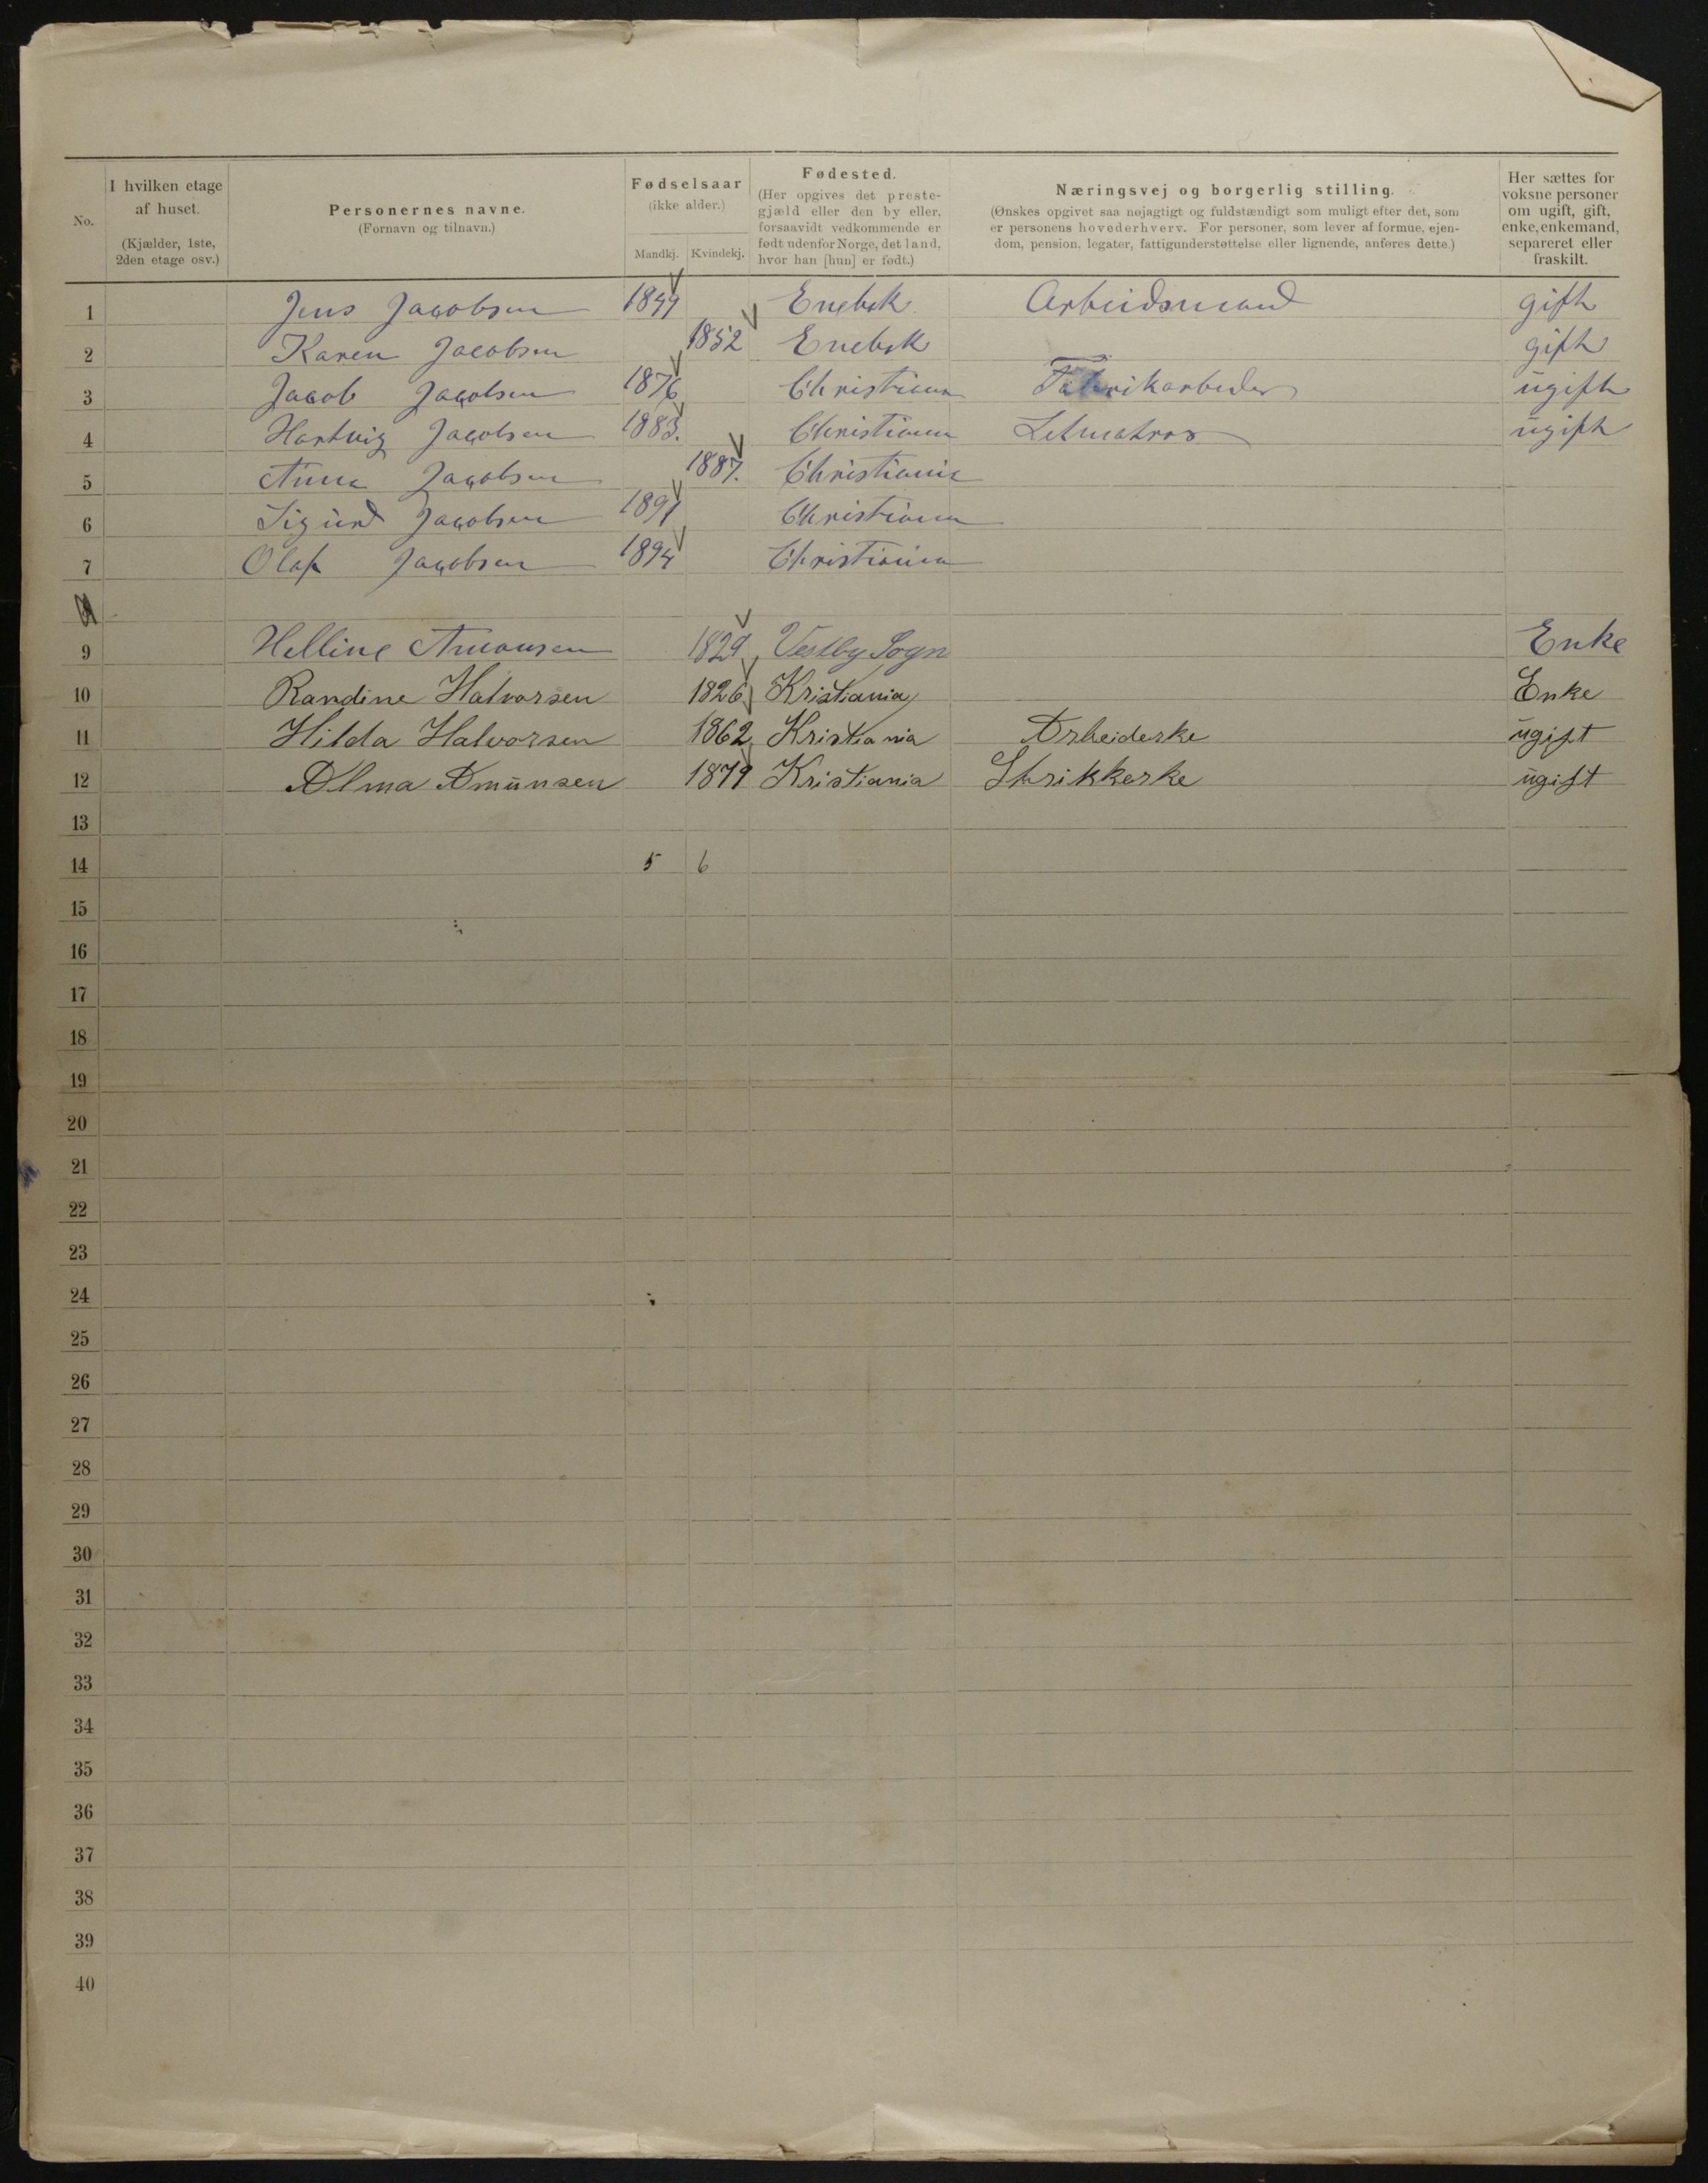 No.
I hvilken etage af huset. (Kjælder, 1ste, 2den etage osv.)
Personernes navne. (Fornavn og tilnavn.)
Fødselsaar (ikke alder.) Mandkj. Kvindekj.
Fødested. (Her opgives det prestegjæld eller den by eller, forsaavidt vedkommende er født udenfor Norge, det land, hvor han [hun] er født.)
Næringsvej og borgerlig stilling. (Ønskes opgivet saa nøjagtigt og fuldstændigt som muligt efter det, som er personens hovederhverv. For personer, som lever af formue, ejendom, pension, legater, fattigunderstøttelse eller lignende, anføres dette.)
Her sættes for voksne personer om ugift, gift, enke, enkemand, separeret eller fraskilt.
1 Jens Jacobsen Enebak Arbeidsmand gift
2 Karen Jacobsen 1852 Enebak gift
3 Jacob Jacobsen 1876 Christiania Fabrikarbeder ugift
4 Hartvig Jacobsen 1883. Christiania Letmatros ugift
5 Anna Jacobsen 1887. Christiania
6 Sigurd Jacobsen 1891 Christiania
7 Olaf Jacobsen 1894 Christiania
9 Helline 1829 Vestby Sogn Enke
10 Randine Halvorsen 1826 Kristiania Enke
11 Hilda Halvorsen 1862 Kristiania Arbeiderke ugift
12 Alma Amunsen 1879 Kristiania Strikkerke ugift
13
14 5 6
15
16
17
18
19
20
21
22
23
24
25
26
27
28
29
30
31
32
33
34
35
36
37
38
39
40